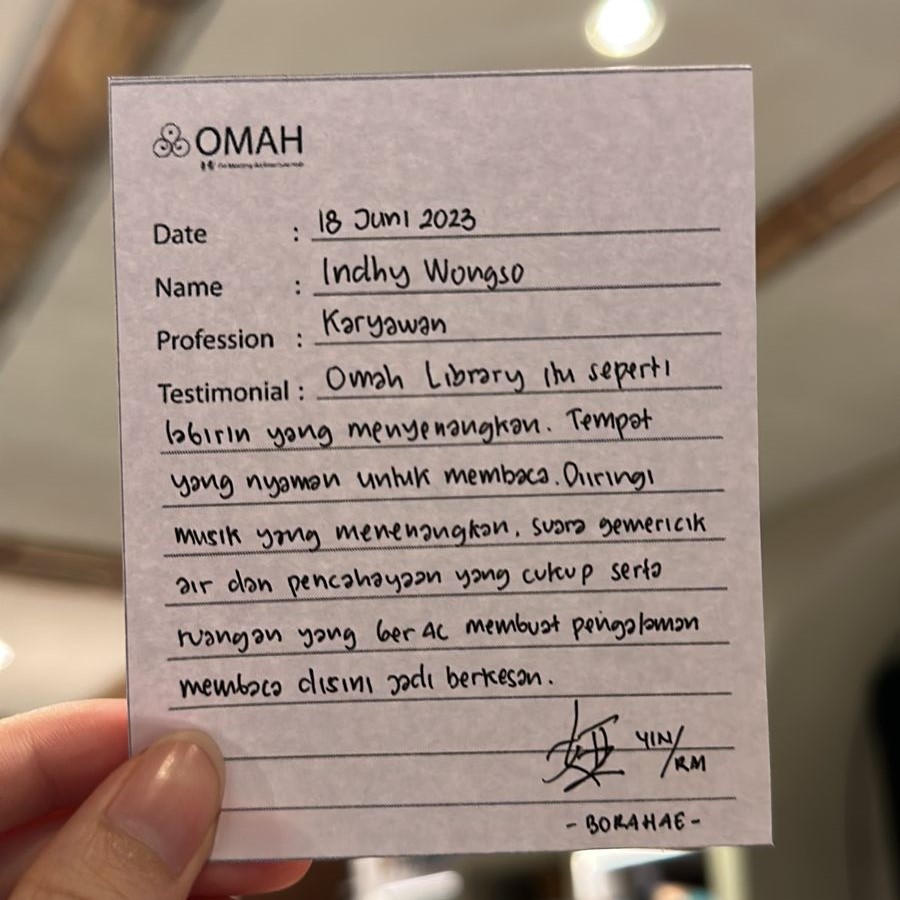 OMAH
Date : 18 Juni 2023
Name : Indhy Wongso
Profession : Karyawan
Testimonial : Omah Library itu seperti
labirin yang menyenangkan. Tempat
yang nyaman untuk membaca. Diiringi
musik yang menenangkan, suara gemericik
air dan pencahayaan yang cukup serta
ruangan yang ber AC membuat pengalaman
membaca disini jadi berkesan.
YIN/
RM
- BORAHAE -